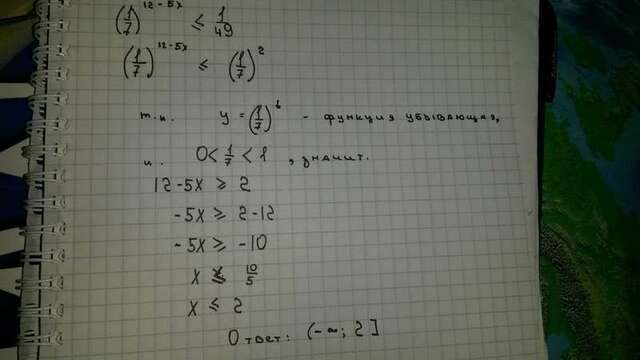 (1/7)^(12-5x) ≤ 1/49
(1/7)^(12-5x) ≤ (1/7)^2
т.к. y = (1/7)^t - функция убывающая,
и. 0 < 1/7 < 1, значит.
12-5x ≥ 2
-5x ≥ 2-12
-5x ≥ -10
x ≤ 10/5
x ≤ 2
Ответ: (-∞; 2]